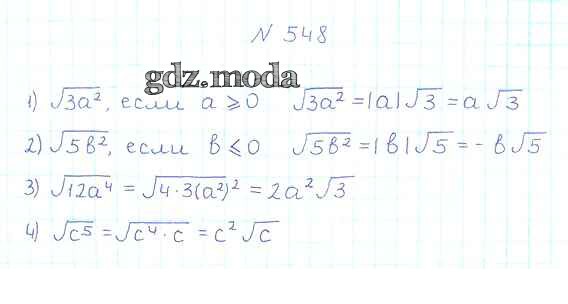 N 548
gdz.moda
1) √3a², если a ⩾ 0 √3a² = |a|√3 = a√3
2) √5b², если b ⩽ 0 √5b² = |b|√5 = -b√5
3) √12a⁴ = √4·3(a²)² = 2a²√3
4) √c⁵ = √c⁴·c = c²√c